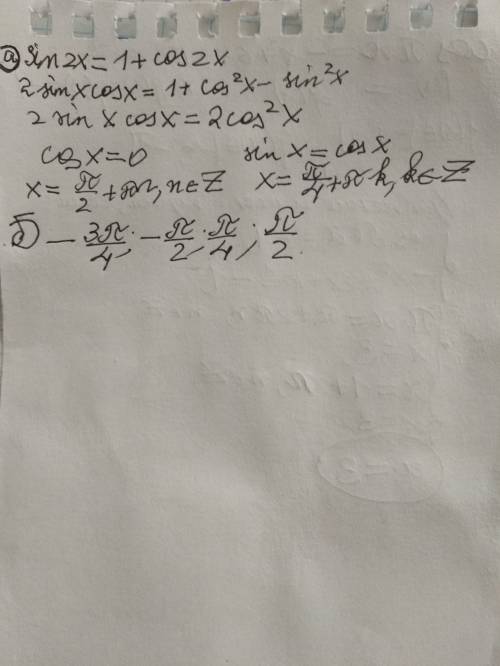 а) sin2x = 1 + cos2x
2 sinx cosx = 1 + cos²x - sin²x
2 sin x cosx = 2cos²x
cos x = 0 sin x = cos x
x = π/2 + πn, n ∈ Z x = π/4 + πk, k ∈ Z
б) - 3π/4; - π/2; π/4; π/2